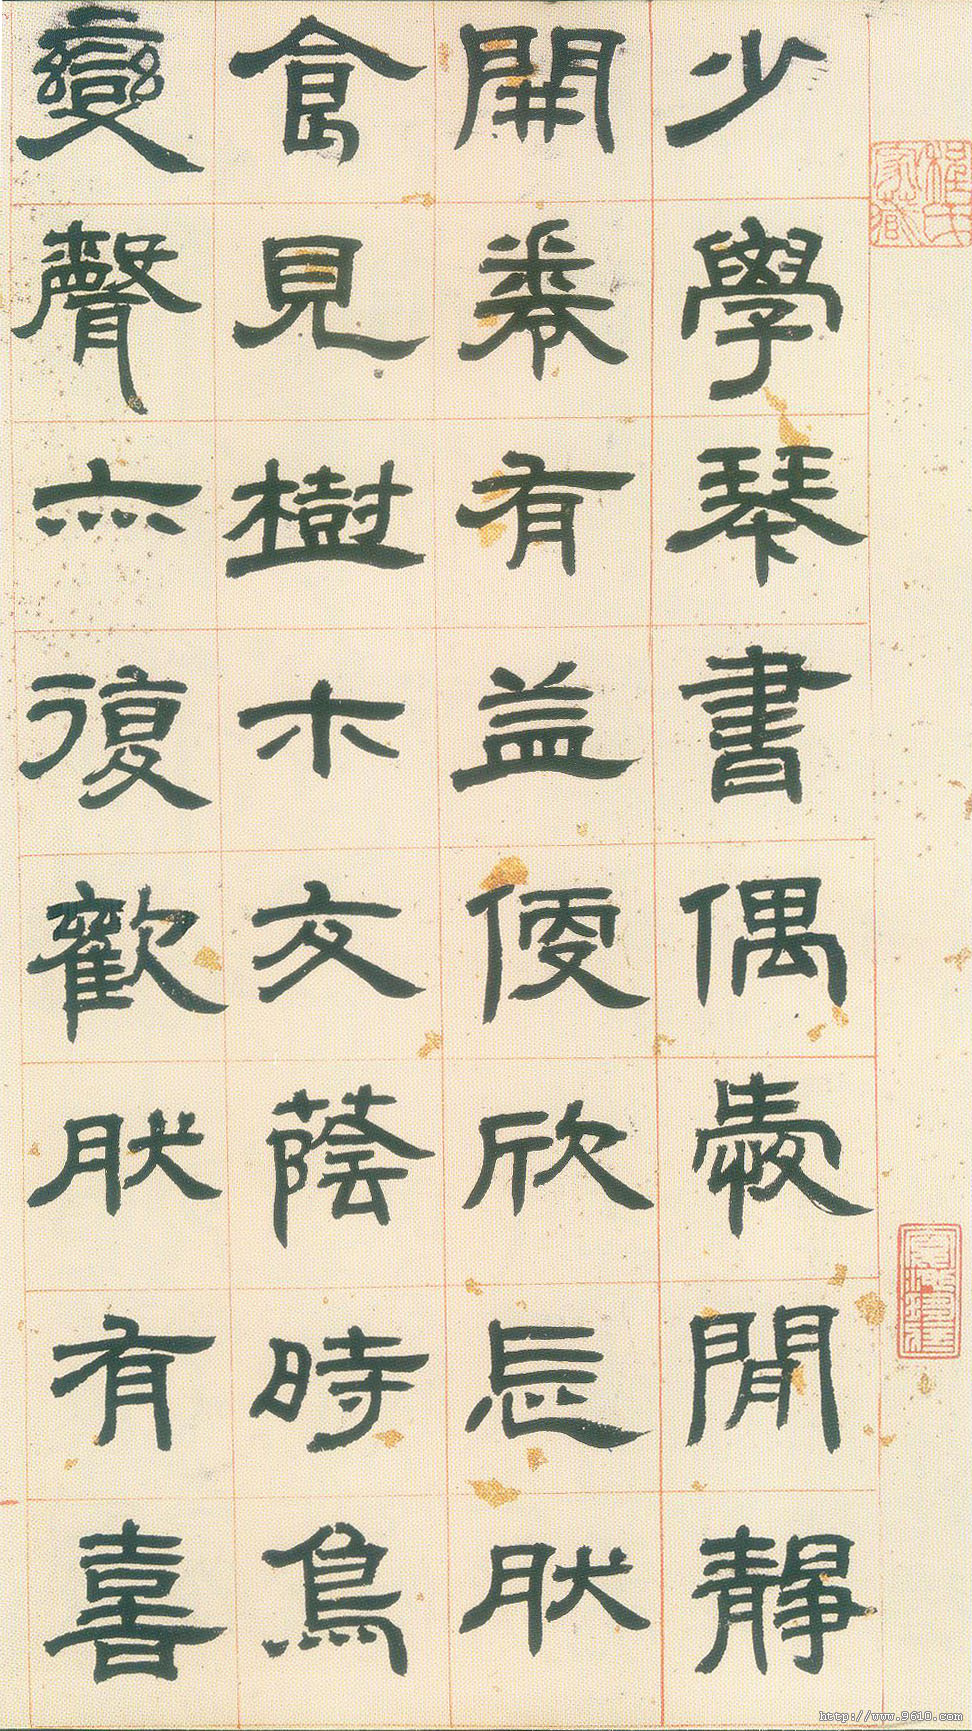 程氏家藏
少學琴書偶愛閒靜
開卷有益便欣忘肰
食見樹木交蔭時鳥
變聲亦復歡肰有喜
http://www.9610.com